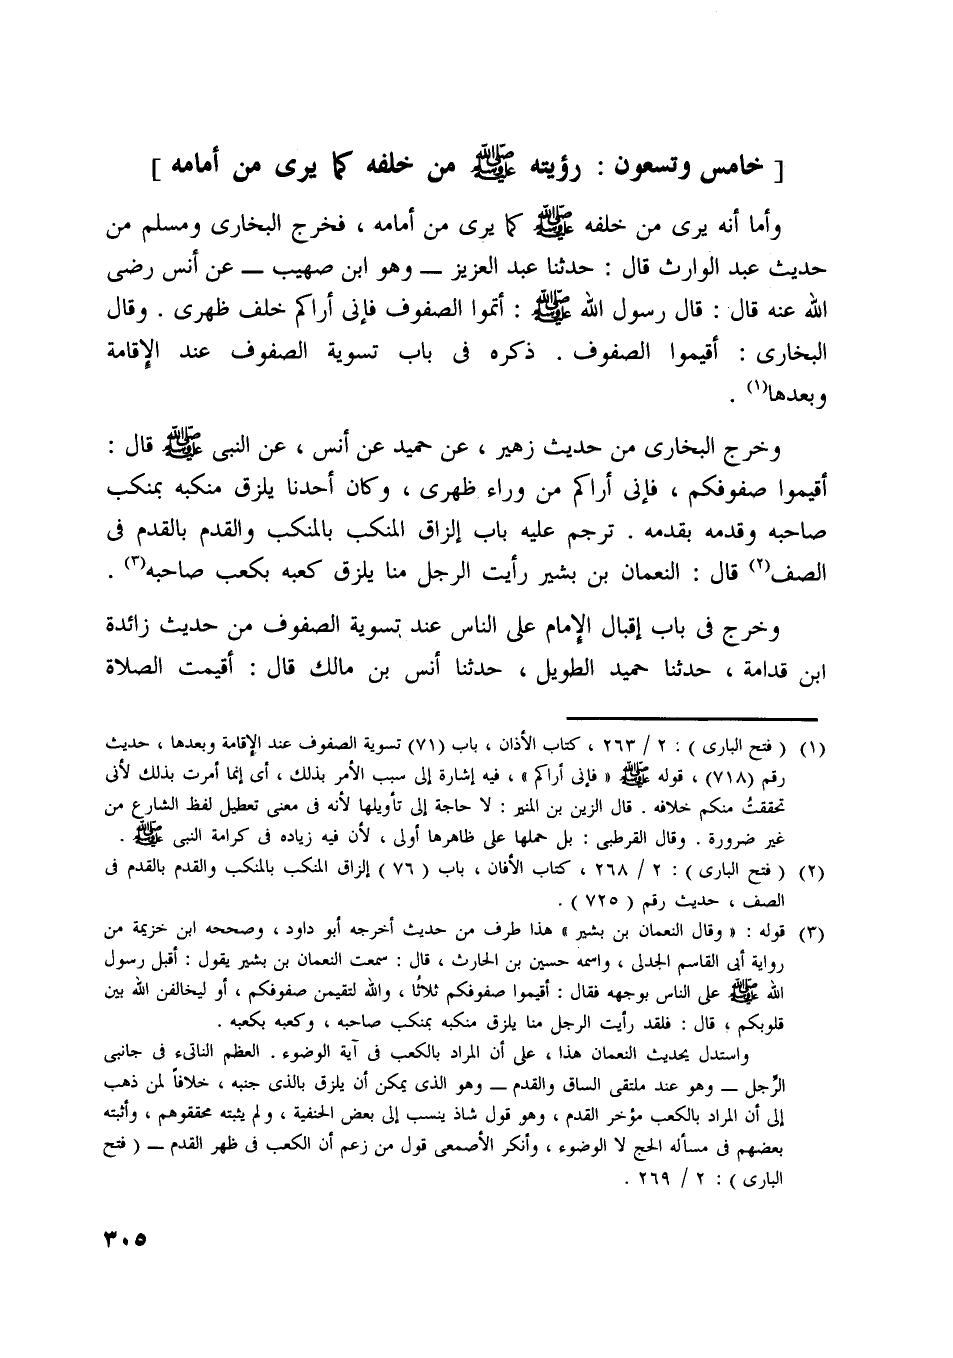 [ خامس وتسعون : رؤيته ﷺ من خلفه كما يرى من أمامه ]
وأما أنه يرى من خلفه ﷺ كما يرى من أمامه ، فخرج البخارى ومسلم من
حديث عبد الوارث قال : حدثنا عبد العزيز ــ وهو ابن صهيب ــ عن أنس رضى
الله عنه قال : قال رسول الله ﷺ : أتموا الصفوف فإنى أراكم خلف ظهرى . وقال
البخارى : أقيموا الصفوف . ذكره فى باب تسوية الصفوف عند الإقامة
وبعدها(١) .
وخرج البخارى من حديث زهير ، عن حميد عن أنس ، عن النبى ﷺ قال :
أقيموا صفوفكم ، فإنى أراكم من وراء ظهرى ، وكان أحدنا يلزق منكبه بمنكب
صاحبه وقدمه بقدمه . ترجم عليه باب إلزاق المنكب بالمنكب والقدم بالقدم فى
الصف(٢) قال : النعمان بن بشير رأيت الرجل منا يلزق كعبه بكعب صاحبه(٣) .
وخرج فى باب إقبال الإمام على الناس عند تسوية الصفوف من حديث زائدة
ابن قدامة ، حدثنا حميد الطويل ، حدثنا أنس بن مالك قال : أقيمت الصلاة
(١) ( فتح البارى ) : ٢ / ٢٦٣ ، كتاب الأذان ، باب (٧١) تسوية الصفوف عند الإقامة وبعدها ، حديث
رقم (٧١٨) ، قوله ﷺ « فإنى أراكم » ، فيه إشارة إلى سبب الأمر بذلك ، أى إنما أمرت بذلك لأنى
تحققتُ منكم خلافه . قال الزين بن المنير : لا حاجة إلى تأويلها لأنه فى معنى تعطيل لفظ الشارع من
غير ضرورة . وقال القرطبى : بل حملها على ظاهرها أولى ، لأن فيه زياده فى كرامة النبى ﷺ .
(٢) ( فتح البارى ) : ٢ / ٢٦٨ ، كتاب الأفان ، باب ( ٧٦ ) إلزاق المنكب بالمنكب والقدم بالقدم فى
الصف ، حديث رقم ( ٧٢٥ ) .
(٣) قوله : « وقال النعمان بن بشير » هذا طرف من حديث أخرجه أبو داود ، وصححه ابن خزيمة من
رواية أبى القاسم الجدلى ، واسمه حسين بن الحارث ، قال : سمعت النعمان بن بشير يقول : أقبل رسول
الله ﷺ على الناس بوجهه فقال : أقيموا صفوفكم ثلاثًا ، والله لتقيمن صفوفكم ، أو ليخالفن الله بين
قلوبكم ، قال : فلقد رأيت الرجل منا يلزق منكبه بمنكب صاحبه ، وكعبه بكعبه .
واستدل بحديث النعمان هذا ، على أن المراد بالكعب فى آية الوضوء . العظم الناتىء فى جانبى
الرِّجل ــ وهو عند ملتقى الساق والقدم ــ وهو الذى يمكن أن يلزق بالذى جنبه ، خلافاً لمن ذهب
إلى أن المراد بالكعب مؤخر القدم ، وهو قول شاذ ينسب إلى بعض الحنفية ، ولم يثبته محققوهم ، وأثبته
بعضهم فى مسأله الحج لا الوضوء ، وأنكر الأصمعى قول من زعم أن الكعب فى ظهر القدم ــ ( فتح
البارى ) : ٢ / ٢٦٩ .
٣٠٥